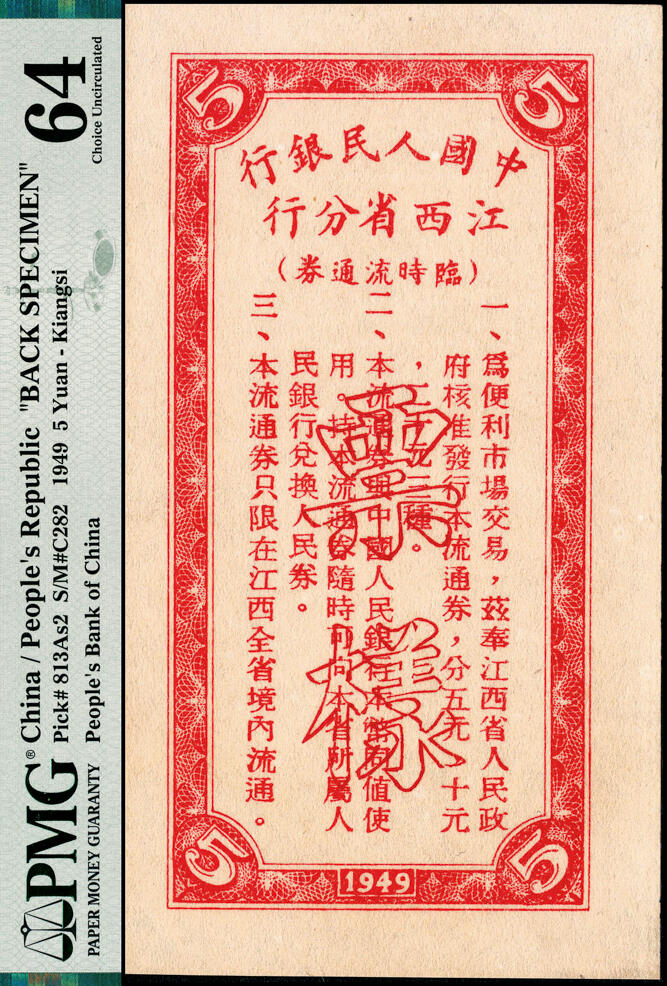 China / People's Republic "BACK SPECIMEN"
Pick# 813As2 S/M#C282 1949 5 Yuan - Kiangsi
People's Bank of China
64
Choice Uncirculated
PMG®
PAPER MONEY GUARANTY
5
5
中國人民銀行
江西省分行
（臨時流通券）
一、為便利市場交易，茲奉江西省人民政
府核准發行本流通券，分五元 十元
，二十元三種。
二、本流通券與中國人民銀行本幣同值使
用。持本流通券隨時可向本省所屬人
民銀行兌換人民券。
三、本流通券只限在江西全省境內流通。
票樣
5
1949
5